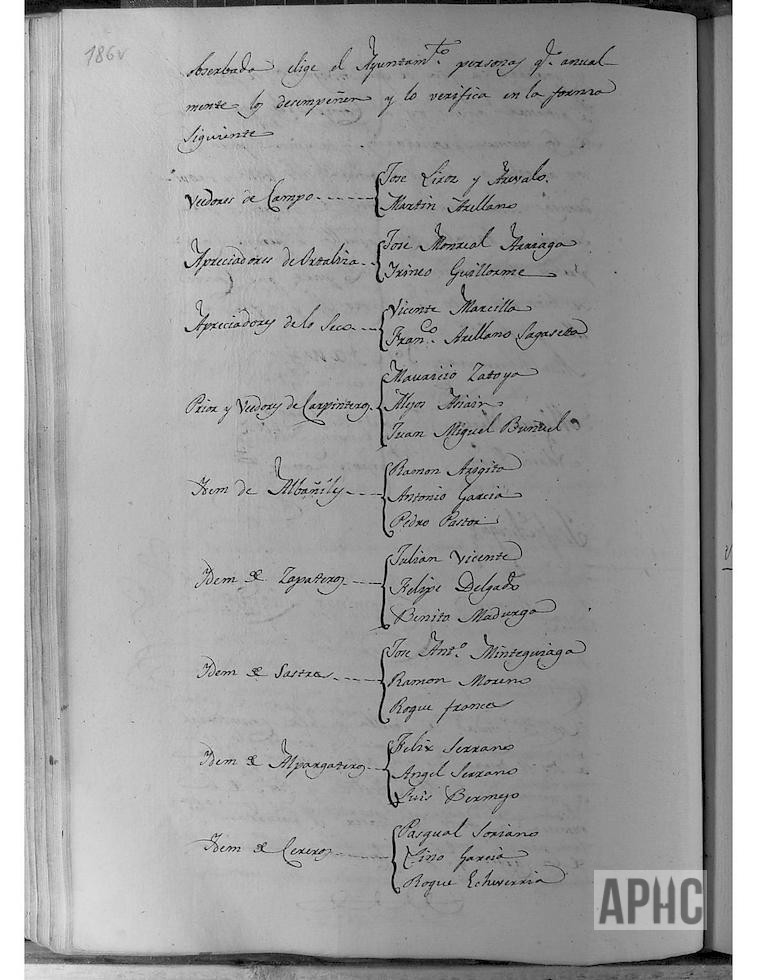 186v
obserbada elige el Ayuntam.to personas q.e anual
mente los desempeñen y lo verifica en la forma
siguiente
Veedores de Campo. ----- { Jose Liroz y Arevalo.
Martin Arellano
Apreciadores de Ortaliza -- { Jose Monreal Arriaga
Irineo Guillorme
Apreciadores de lo Seco. --- { Vicente Marcilla
Fran.co Arellano Sagaseta
Prior y Veedores de Carpinteros. { Mauricio Zatoya
Alejos Asiain
Juan Miguel Buñuel
Idem de Albañiles ---- { Ramon Arigita
Antonio Garcia
Pedro Pastor
Idem de Zapateros ---- { Julian Vicente
Felipe Delgado
Benito Madurga
Idem de Sastres ----- { Jose Ant.o Minteguiaga
Ramon Moreno
Roque frances
Idem de Alpargateros -- { Felix Serrano
Angel Serrano
Luis Bermejo
Idem de Cereros ------ { Pasqual Soriano
Lino Garcia
Roque Echeverria
APHC